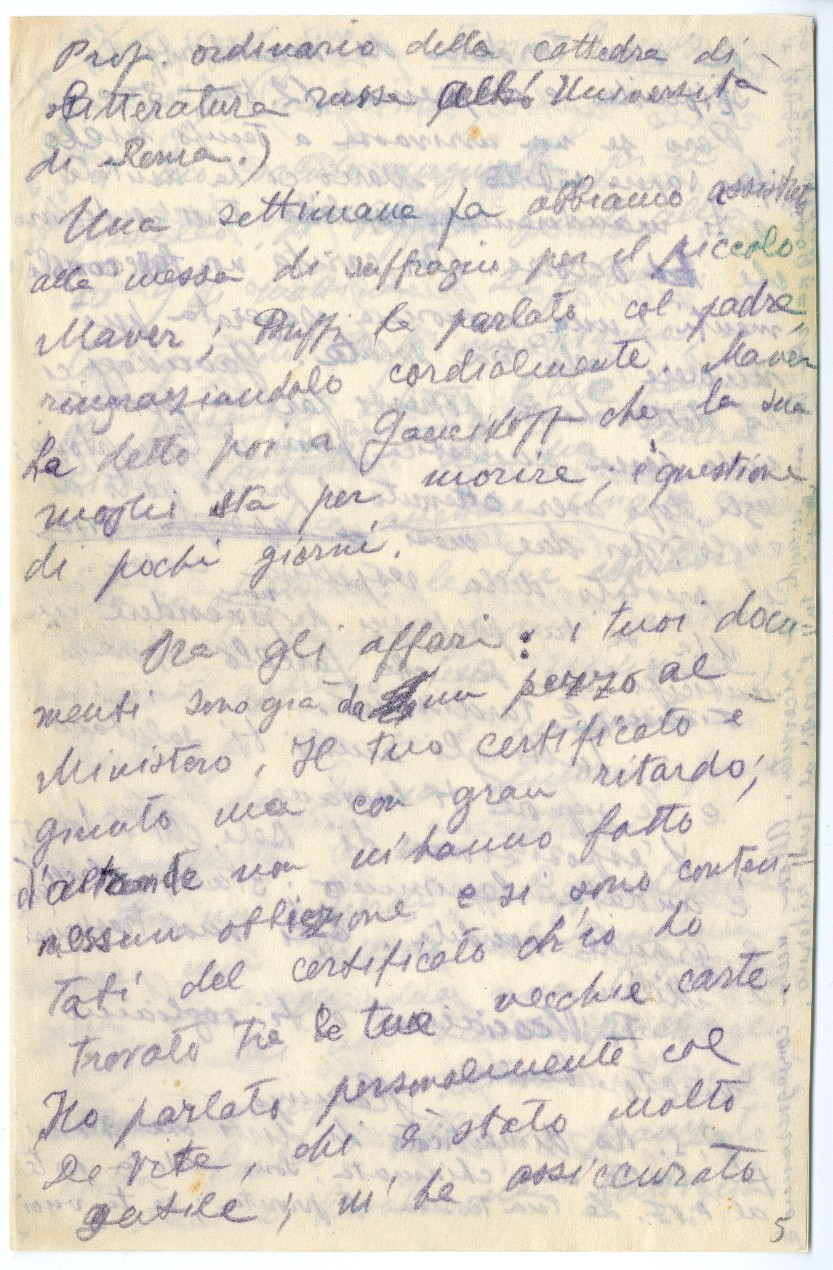 Prof. ordinario della cattedra di
Litteratura russa all' Università
di Roma.)
Una settimana fa abbiamo assistito
alla messa di suffragio per il piccolo
Maver; ha parlato col padre,
ringraziandolo cordialmente. Maver
ha detto poi a che la sua
moglie sta per morire; è questione
di pochi giorni.
Ora gli affari: i tuoi docu-
menti sono già da un pezzo al
Ministero, Il tuo certificato è
giunto ma con gran ritardo;
d'altronde non mi hanno fatto
nessun obbiezione e si sono conten-
tati del certificato ch'io ho
trovato tra le tue vecchie carte.
Ho parlato personalmente col
, chi è stato molto
gentile; mi ha assiccurato
5